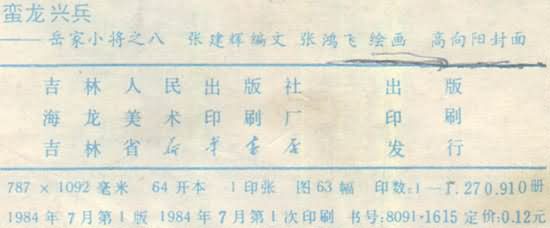 蛮龙兴兵
——岳家小将之八 张建辉编文 张鸿飞绘画 高向阳封面
吉林人民出版社 出版
海龙美术印刷厂 印刷
吉林省新华书店 发行
787×1092毫米 64开本 1印张 图63幅 印数:1—1.270.910册
1984年7月第1版 1984年7月第1次印刷 书号:8091·1615 定价:0.12元